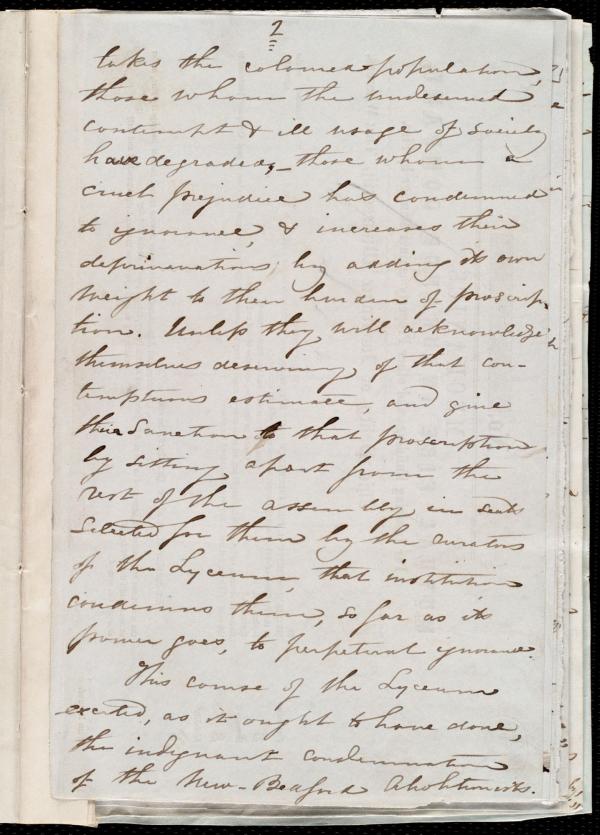 2
takes the colored population,
those whom the undeserved
contempt & ill usage of society
have degraded, – those whom a
cruel prejudice has condemned
to ignorance, & increases their
deprivations, by adding its own
weight to their burden of proscrip-
tion. Unless they will acknowledge
themselves deserving of that con-
temptuous estimate, and give
their sanction to that proscription
by sitting apart from the
rest of the assembly in seats
selected for them by the curators
of the Lyceum, that institution
condemns them, so far as its
power goes, to perpetual ignorance.
This course of the Lyceum
excited, as it ought to have done,
the indignant condemnation
of the New-Bedford Abolitionists.